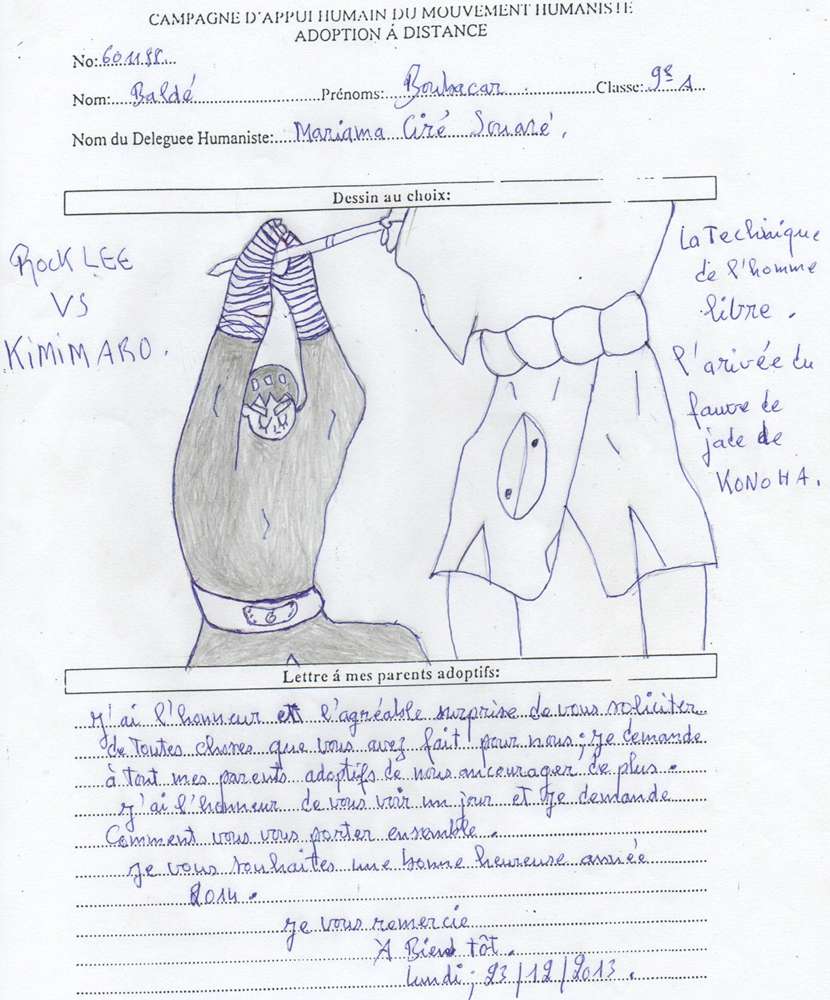 CAMPAGNE D'APPUI HUMAIN DU MOUVEMENT HUMANISTE
ADOPTION Á DISTANCE
No:601188
Nom: Baldé Prénoms: Boubacar Classe: 9è A
Nom du Deleguee Humaniste: Mariama Ciré Souaré.
Dessin au choix:
Rock LEE
VS
KIMIMARO.
La Technique
de l'homme
libre.
l'arivée du
fauve de
jade de
KONOHA.
Lettre á mes parents adoptifs:
J'ai l'honneur et l'agréable surprise de vous soliciter
de toutes choses que vous avez fait pour nous; je demande
à tout mes parents adoptifs de nous ancourager de plus.
J'ai l'honneur de vous voir un jour et je demande
Comment vous vous porter ensemble.
je vous souhaites une bonne heureuse année
2014.
je vous remercie
A Bient tôt.
lundi; 23/12/2013.